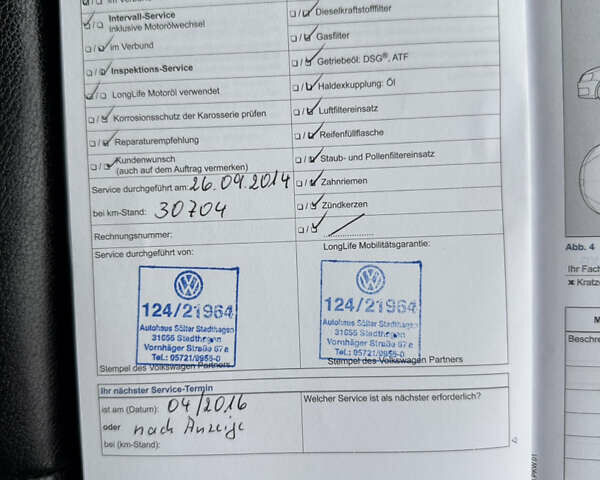 Intervall-Service
inklusive Motorölwechsel
im Verbund
Inspektions-Service
LongLife Motoröl verwendet
Korrosionsschutz der Karosserie prüfen
Reparaturempfehlung
Kundenwunsch
(auch auf dem Auftrag vermerken)
Service durchgeführt am: 26.09.2014
bei km-Stand: 30704
Rechnungsnummer:
Dieselkraftstofffilter
Gasfilter
Getriebeöl: DSG®, ATF
Haldexkupplung: Öl
Luftfiltereinsatz
Reifenfüllflasche
Staub- und Pollenfiltereinsatz
Zahnriemen
Zündkerzen
Service durchgeführt von:
124/21964
Autohaus Sölter Stadthagen
31655 Stadthagen
Vornhäger Straße 67a
Tel.: 05721/9955-0
Stempel des Volkswagen Partners
LongLife Mobilitätsgarantie:
124/21964
Autohaus Sölter Stadthagen
31655 Stadthagen
Vornhäger Straße 67a
Tel.: 05721/9955-0
Stempel des Volkswagen Partners
Ihr nächster Service-Termin
ist am (Datum): 04/2016
oder nach Anzeige
bei (km-Stand):
Welcher Service ist als nächster erforderlich?
Abb. 4
Ihr Fach
Kratze
Beschre